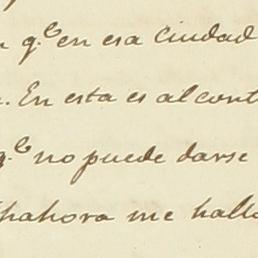 q.e en esa Ciudad
En esta es al cont
q.e no puede darse
hahora me hall